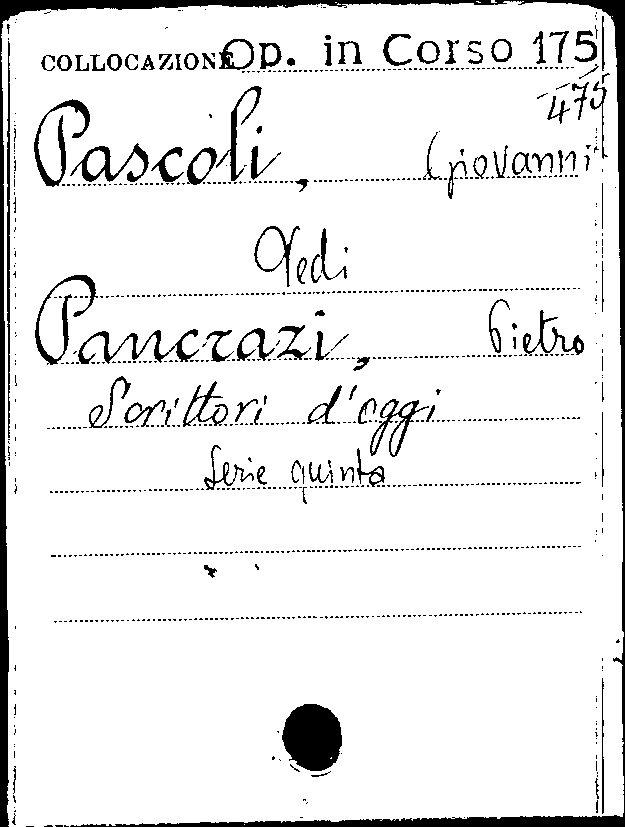 COLLOCAZIONE Op. in Corso 175
475
Pascoli, Giovanni
Vedi
Pancrazi, Pietro
Scrittori d'oggi
Serie quinta